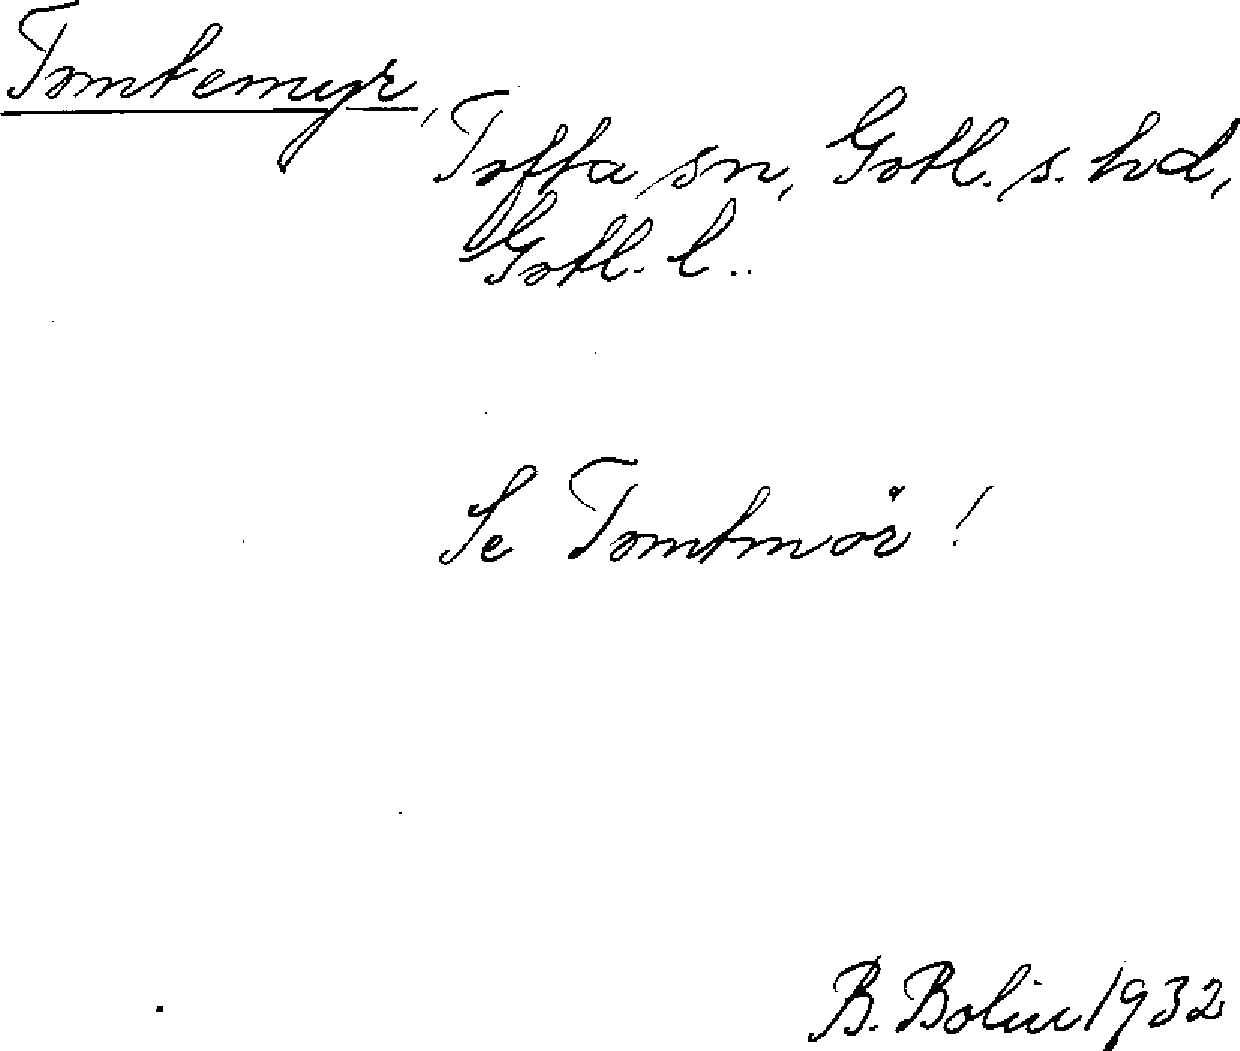 Tomtemyr,
Tofta sn, Gotl. s. hd,
Gotl. l..
Se Tomtmör!
B. Bolin 1932